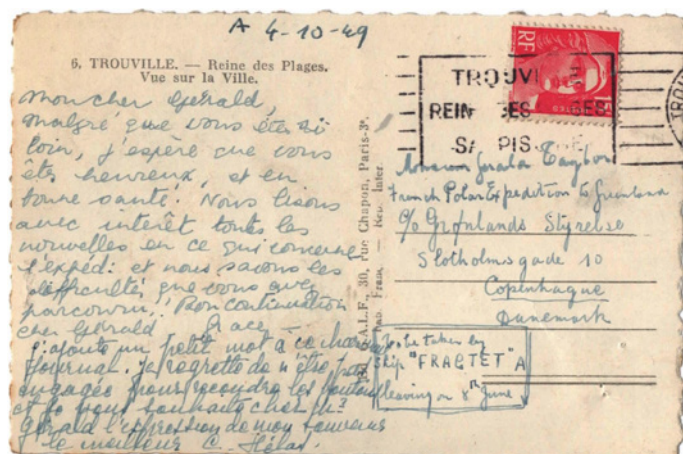 A 4-10-49
6. TROUVILLE. — Reine des Plages.
Vue sur la Ville.
Mon cher Gérald,
malgré que vous êtes si
loin, j'espère que vous
êtes heureux, et en
bonne santé. Nous lisons
avec intérêt toutes les
nouvelles en ce qui concerne
l'expéd: et nous savons les
difficultés que vous avez
parcouru. Bon continuation
cher Gérald
j'ajoute un petit mot à ce
journal. je regrette de n'être pas
engagés pour
et je vous souhaite cher Mr
Gérald l'expression de mon souvenir
le meilleur C.
30, rue Chapon, Paris-3e.
RF
TROUVI
REIN DES GES
SA PIS
Monsieur
French Polar Expedition to Greenland
c/o Grønlands Styrelse
Slotholmsgade 10
Copenhague
Danemark
To be taken by
ship "FRAGTET" A
leaving on 8th June